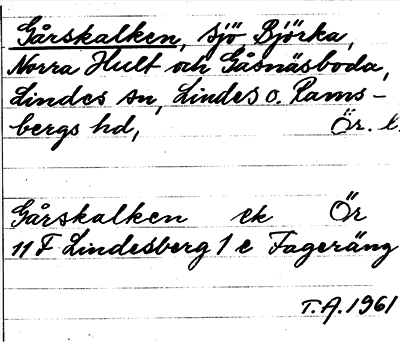 Gårskalken, sjö Björka,
Norra Hult och Gåsnäsboda,
Lindes sn, Lindes o. Rams-
bergs hd, Ör. l.
Gårskalken ek Ör
11 F Lindesberg 1 e Fageräng
T.A. 1961